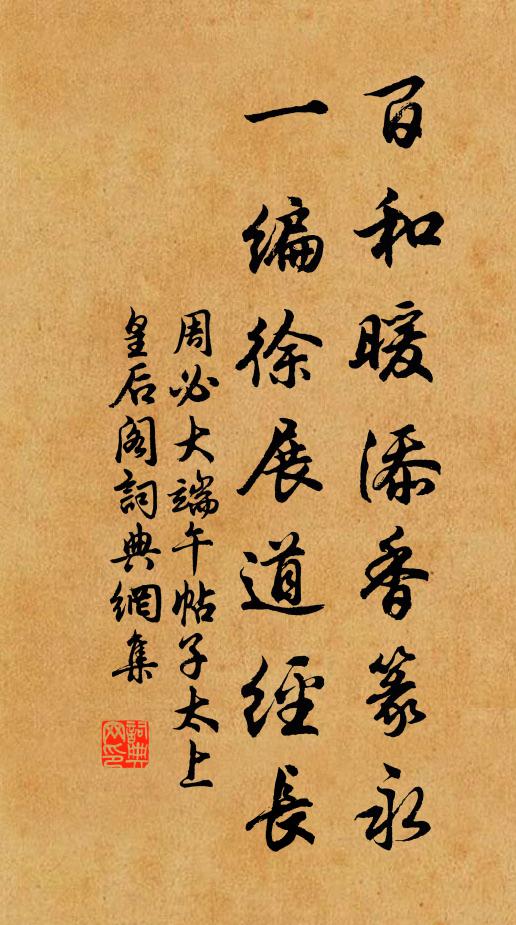 百和暖添香篆永
一编徐展道經長
周必大端午帖子太上
皇后阁詞典網集
詞典网印